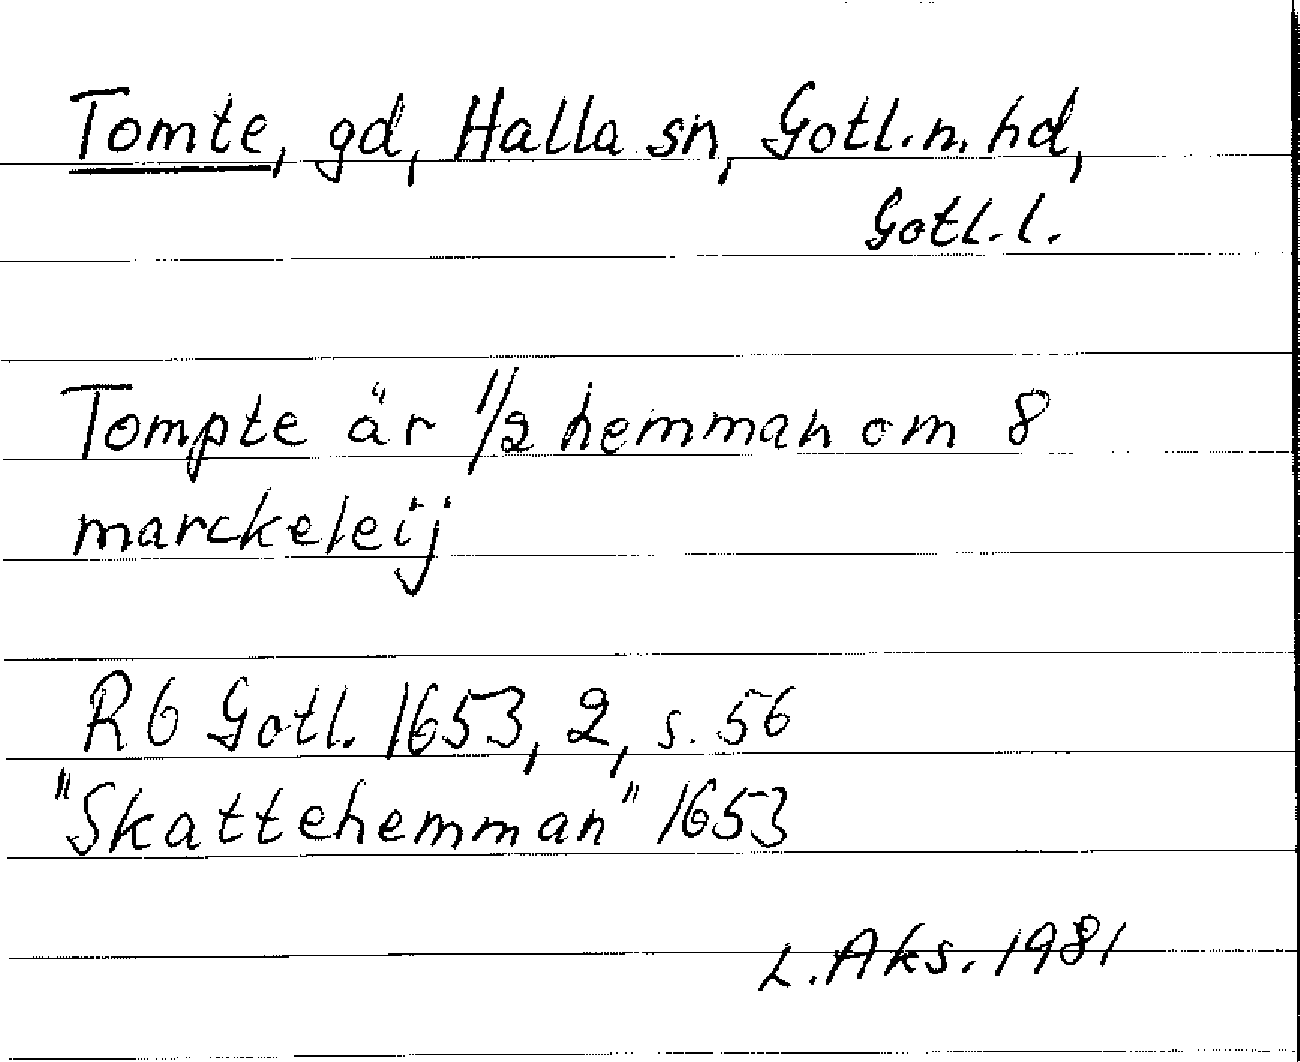 Tomte, gd, Halla sn, Gotl. n. hd,
Gotl. l.
Tompte är 1/2 hemman om 8
marckeleij
R6 Gotl. 1653, 2, s. 56
"Skattehemman" 1653
L. Aks. 1981